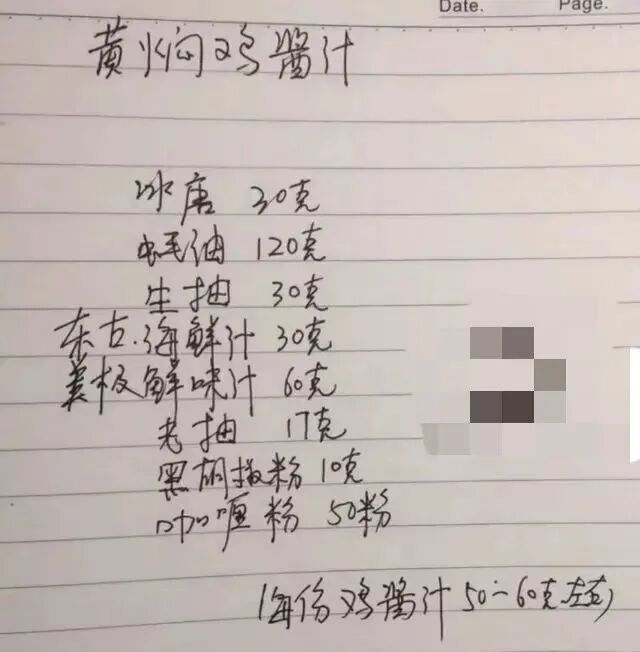 Date. Page.
黄焖鸡醬汁
冰唐 30克
蚝油 120克
生抽 30克
东古.海鲜汁 30克
美极鲜味汁 60克
老抽 17克
黑胡撒粉 10克
咖喱粉 50粉
(每份鸡醬汁50-60克左右)